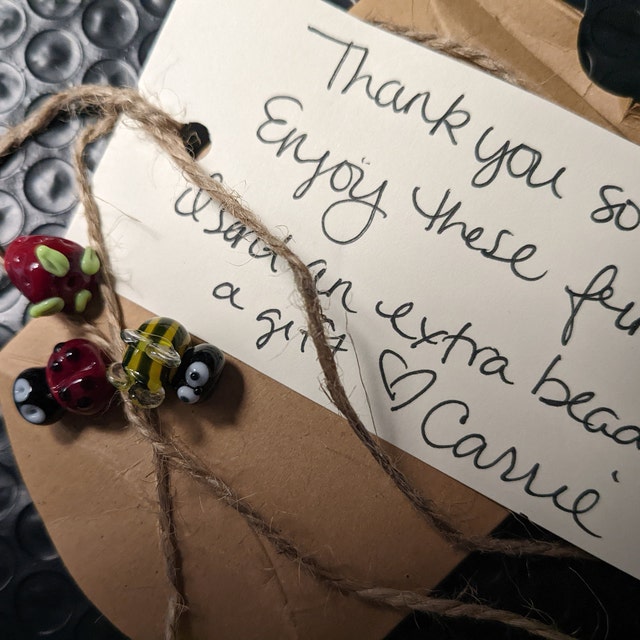 Thank you so
Enjoy these fun
I send an extra bead
a gift
♡ Carrie